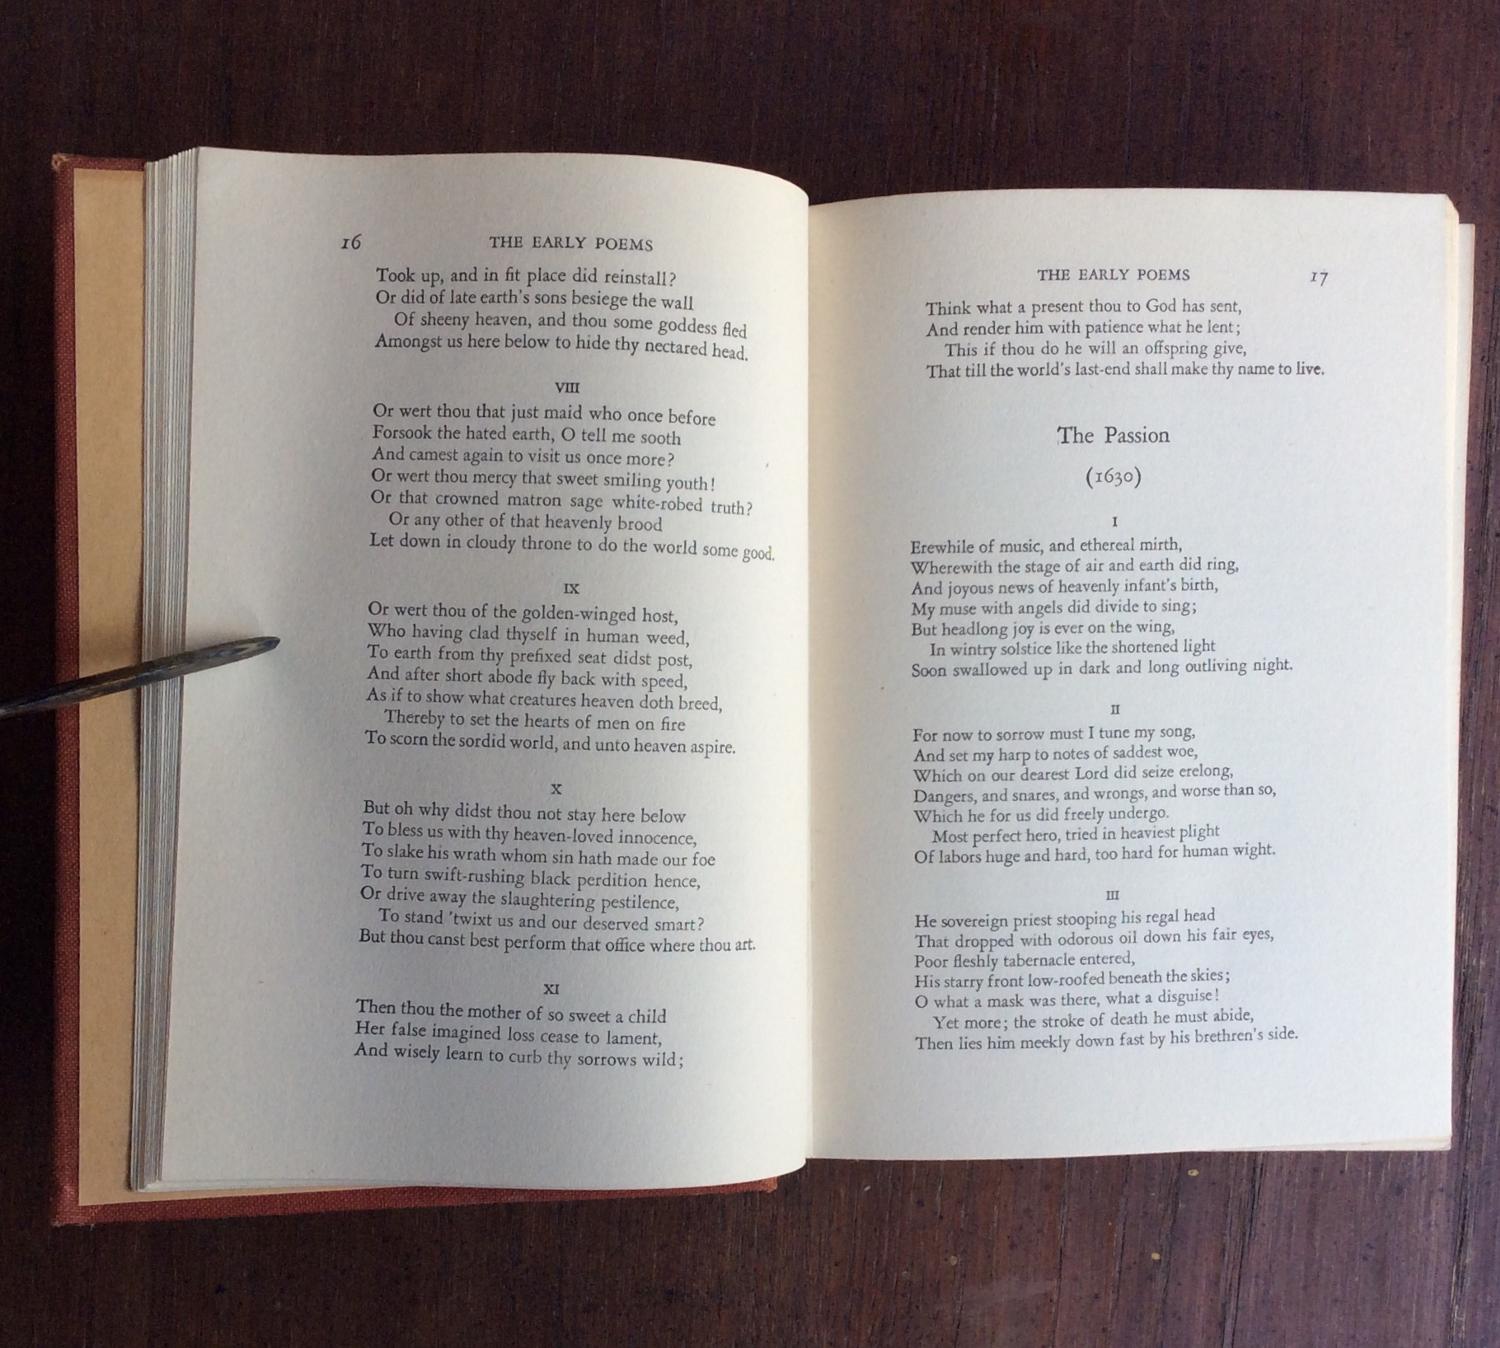 16 THE EARLY POEMS
Took up, and in fit place did reinstall?
Or did of late earth's sons besiege the wall
Of sheeny heaven, and thou some goddess fled
Amongst us here below to hide thy nectared head.
VIII
Or wert thou that just maid who once before
Forsook the hated earth, O tell me sooth
And camest again to visit us once more?
Or wert thou mercy that sweet smiling youth!
Or that crowned matron sage white-robed truth?
Or any other of that heavenly brood
Let down in cloudy throne to do the world some good.
IX
Or wert thou of the golden-winged host,
Who having clad thyself in human weed,
To earth from thy prefixed seat didst post,
And after short abode fly back with speed,
As if to show what creatures heaven doth breed,
Thereby to set the hearts of men on fire
To scorn the sordid world, and unto heaven aspire.
X
But oh why didst thou not stay here below
To bless us with thy heaven-loved innocence,
To slake his wrath whom sin hath made our foe
To turn swift-rushing black perdition hence,
Or drive away the slaughtering pestilence,
To stand 'twixt us and our deserved smart?
But thou canst best perform that office where thou art.
XI
Then thou the mother of so sweet a child
Her false imagined loss cease to lament,
And wisely learn to curb thy sorrows wild;
THE EARLY POEMS 17
Think what a present thou to God has sent,
And render him with patience what he lent;
This if thou do he will an offspring give,
That till the world's last-end shall make thy name to live.
The Passion
(1630)
I
Erewhile of music, and ethereal mirth,
Wherewith the stage of air and earth did ring,
And joyous news of heavenly infant's birth,
My muse with angels did divide to sing;
But headlong joy is ever on the wing,
In wintry solstice like the shortened light
Soon swallowed up in dark and long outliving night.
II
For now to sorrow must I tune my song,
And set my harp to notes of saddest woe,
Which on our dearest Lord did seize erelong,
Dangers, and snares, and wrongs, and worse than so,
Which he for us did freely undergo.
Most perfect hero, tried in heaviest plight
Of labors huge and hard, too hard for human wight.
III
He sovereign priest stooping his regal head
That dropped with odorous oil down his fair eyes,
Poor fleshly tabernacle entered,
His starry front low-roofed beneath the skies;
O what a mask was there, what a disguise!
Yet more; the stroke of death he must abide,
Then lies him meekly down fast by his brethren's side.